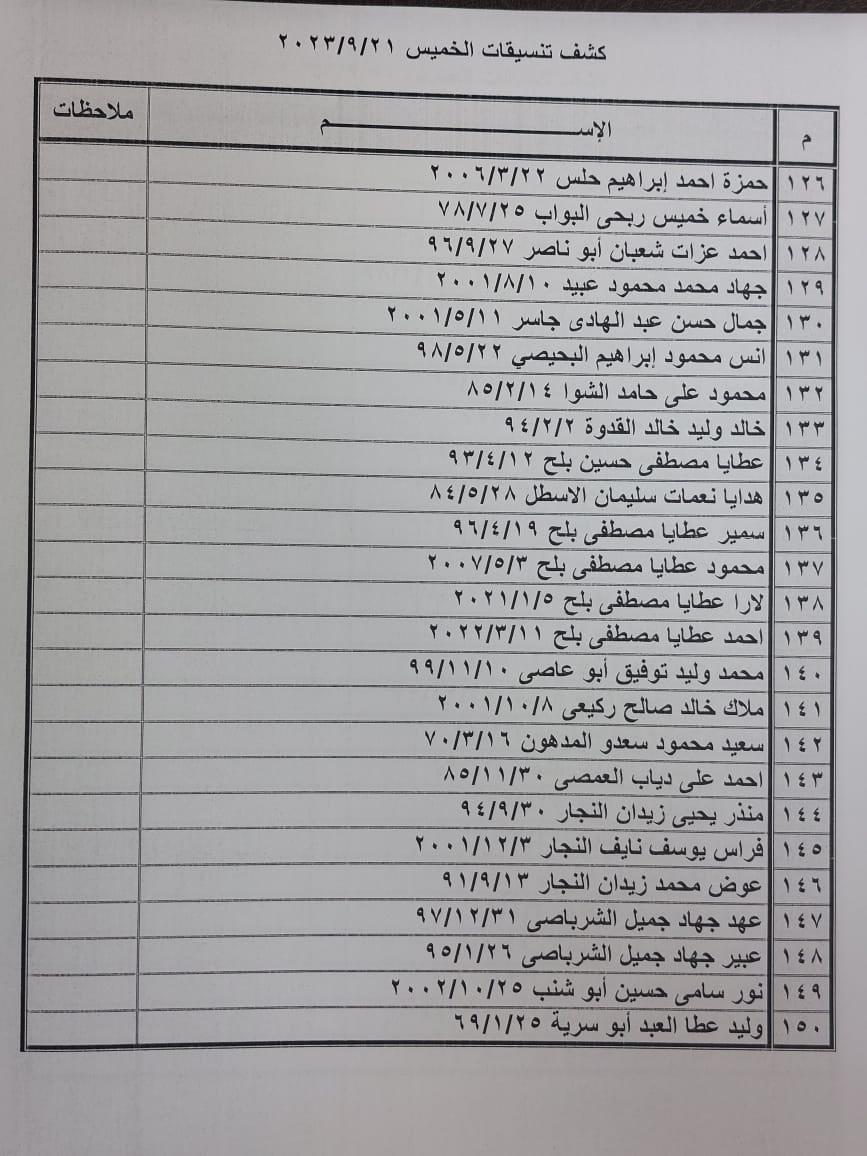 كشف تنسيقات الخميس ٢٠٢٣/٩/٢١
م الإســــــــــم ملاحظات
١٢٦ حمزة احمد إبراهيم حلس ٢٠٠٦/٣/٢٢
١٢٧ أسماء خميس ربحى البواب ٧٨/٧/٢٥
١٢٨ احمد عزات شعبان أبو ناصر ٩٦/٩/٢٧
١٢٩ جهاد محمد محمود عبيد ٢٠٠١/٨/١٠
١٣٠ جمال حسن عبد الهادى جاسر ٢٠٠١/٥/١١
١٣١ انس محمود إبراهيم البحيصي ٩٨/٥/٢٢
١٣٢ محمود على حامد الشوا ٨٥/٢/١٤
١٣٣ خالد وليد خالد القدوة ٩٤/٢/٢
١٣٤ عطايا مصطفى حسين بلح ٩٣/٤/١٢
١٣٥ هدايا نعمات سليمان الاسطل ٨٤/٥/٢٨
١٣٦ سمير عطايا مصطفى بلح ٩٦/٤/١٩
١٣٧ محمود عطايا مصطفى بلح ٢٠٠٧/٥/٣
١٣٨ لارا عطايا مصطفى بلح ٢٠٢١/١/٥
١٣٩ احمد عطايا مصطفى بلح ٢٠٢٢/٣/١١
١٤٠ محمد وليد توفيق أبو عاصى ٩٩/١١/١٠
١٤١ ملاك خالد صالح ركيعى ٢٠٠١/١٠/٨
١٤٢ سعيد محمود سعدو المدهون ٧٠/٣/١٦
١٤٣ احمد على دياب العمصى ٨٥/١١/٣٠
١٤٤ منذر يحيى زيدان النجار ٩٤/٩/٣٠
١٤٥ فراس يوسف نايف النجار ٢٠٠١/١٢/٣
١٤٦ عوض محمد زيدان النجار ٩١/٩/١٣
١٤٧ عهد جهاد جميل الشرباصى ٩٧/١٢/٣١
١٤٨ عبير جهاد جميل الشرباصى ٩٥/١/٢٦
١٤٩ نور سامى حسين أبو شنب ٢٠٠٢/١٠/٢٥
١٥٠ وليد عطا العبد أبو سرية ٦٩/١/٢٥